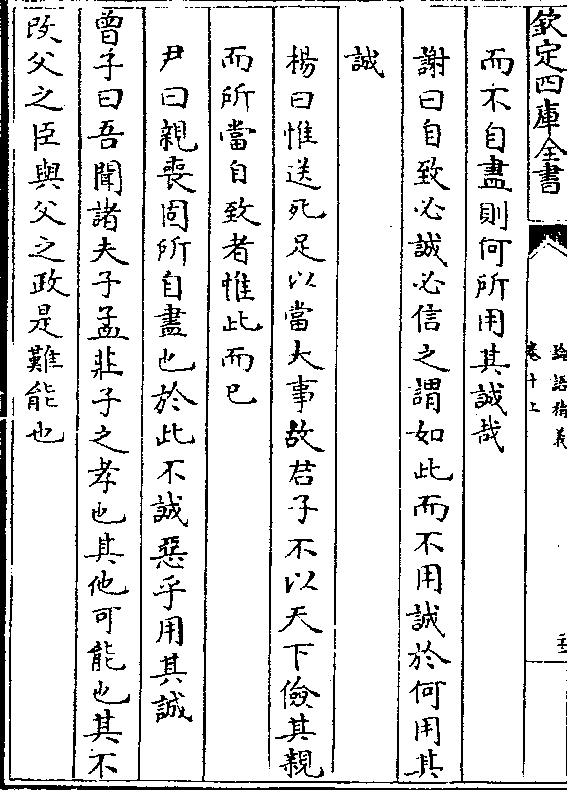 欽定四庫全書
論語精義
卷十上
而不自盡則何所用其誠哉
謝曰自致必誠必信之謂如此而不用誠於何用其
誠
楊曰惟送死足以當大事故君子不以天下儉其親
而所當自致者惟此而已
尹曰親喪固所自盡也於此不誠惡乎用其誠
曾子曰吾聞諸夫子孟莊子之孝也其他可能也其不
改父之臣與父之政是難能也